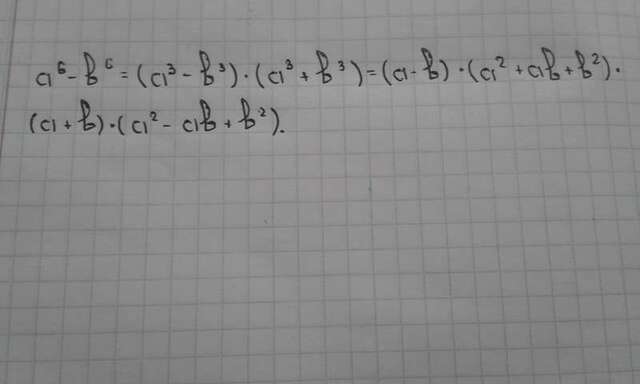 a⁶ - b⁶ = (a³ - b³) · (a³ + b³) = (a - b) · (a² + ab + b²) ·
(a + b) · (a² - ab + b²).